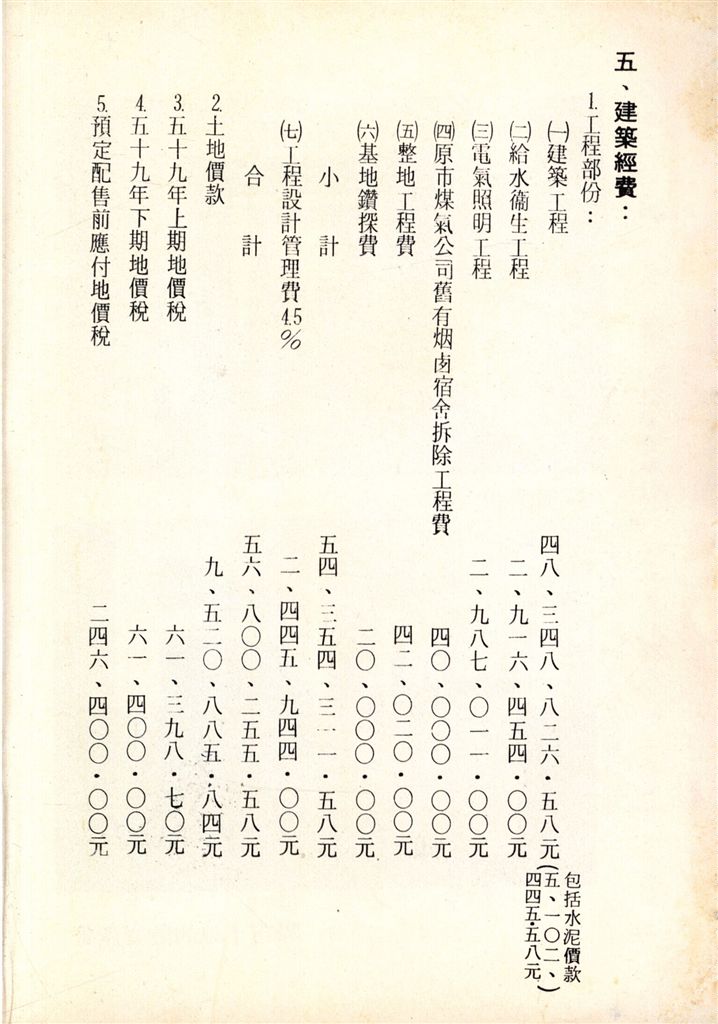 五、建築經費：
1.工程部份：
㈠建築工程　四八、三四八、八二六.五八元(包括水泥價款
五、一〇二、
四四五.五八元)
㈡給水衞生工程　二、九一六、四五四.〇〇元
㈢電氣照明工程　二、九八七、〇一一.〇〇元
㈣原市煤氣公司舊有烟囪宿舍拆除工程費　四〇、〇〇〇.〇〇元
㈤整地工程費　四二、〇二〇.〇〇元
㈥基地鑽探費　二〇、〇〇〇.〇〇元
小計　五四、三五四、三一一.五八元
㈦工程設計管理費4.5%　二、四四五、九四四.〇〇元
合計　五六、八〇〇、二五五.五八元
2.土地價款　九、五二〇、八八五.八四元
3.五十九年上期地價稅　六一、三九八.七〇元
4.五十九年下期地價稅　六一、四〇〇.〇〇元
5.預定配售前應付地價稅　二四六、四〇〇.〇〇元